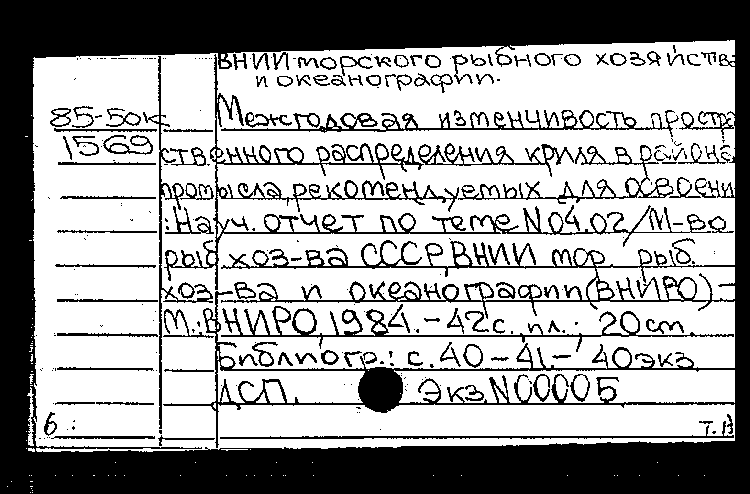 ВНИИ морского рыбного хозяйства
и океанографии.
85-50к Межгодовая изменчивость простра
1569 ственного распределения криля в района
промысла, рекомендуемых для освоени
: Науч. отчет по теме N04.02/М-во
рыб хоз-ва СССР, ВНИИ мор. рыб.
хоз-ва и океанографии (ВНИРО) -
М.: ВНИРО, 1984. - 42с. ил.; 20см.
Библиогр.: с. 40-41 - 40экз.
ДСП. Экз. N00005
б : Т. В